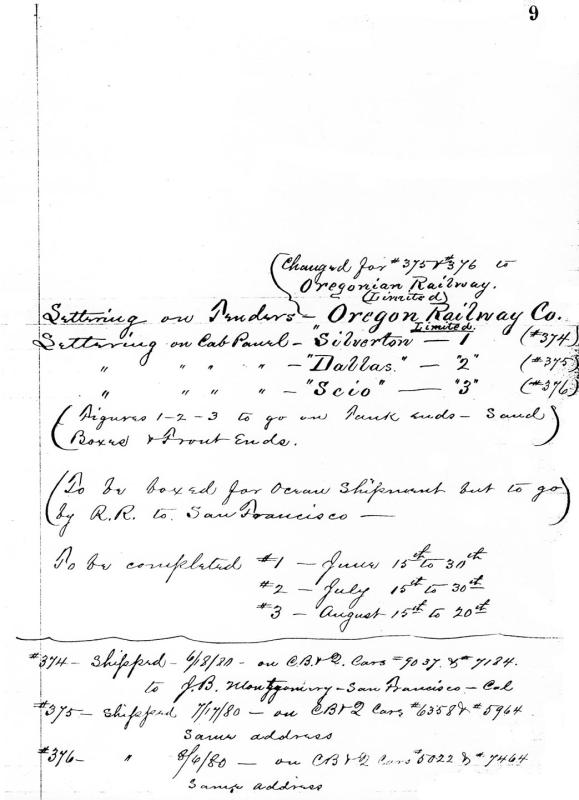 9
(Changed for #375 & #376 to
Oregonian Railway.
(Limited)
Lettering on Tenders - Oregon Railway Co.
Limited.
Lettering on Cab Panel - "Silverton - 1 (#374)
" " " " - "Dallas." - "2" (#375)
" " " " - "Scio" - "3" (#376)
(Figures 1-2-3 to go on Tank ends - Sand
Boxes & Front Ends.)
(To be boxed for Ocean Shipment but to go
by R.R. to San Francisco -)
To be completed #1 - June 15th to 30th
#2 - July 15th to 30th
#3 - August 15th to 20th
#374 - Shipped - 6/8/80 - on C.B. & Q. Cars #9037. & #7184.
to J.B. Montgomery - San Francisco - Cal
#375 - Shipped 7/17/80 - on CB & Q Cars #6358 & #5964.
Same address
#376 - " 8/6/80 - on CB & Q Cars #5022 & #7464
Same address